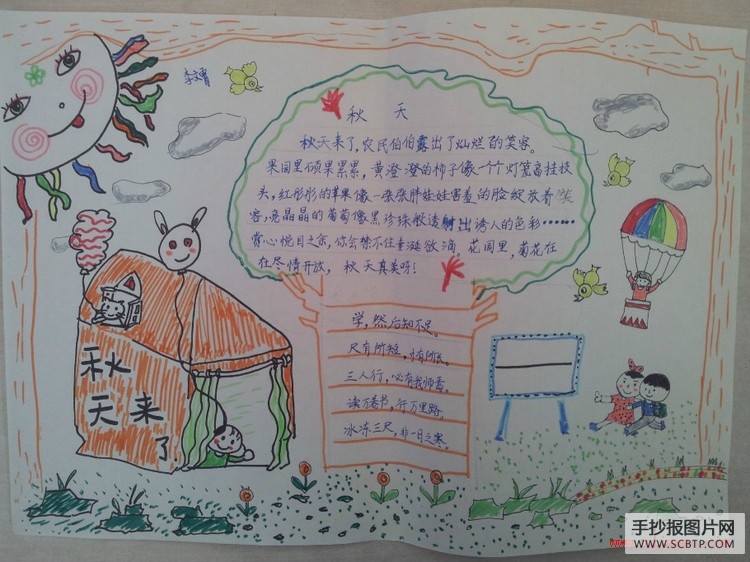 秋 天
秋天来了,农民伯伯露出了灿烂的笑容。
果园里硕果累累,黄澄澄的柿子像一个个灯笼高挂枝
头,红彤彤的苹果像一张张胖娃娃害羞的脸绽放着笑
容,亮晶晶的葡萄像黑珍珠般透射出诱人的色彩……
赏心悦目之余,你会禁不住垂涎欲滴。花园里,菊花在
在尽情开放, 秋天真美呀!
学,然后知不足。
尺有所短,寸有所长。
三人行,必有我师焉。
读万卷书,行万里路。
冰冻三尺,非一日之寒。
秋
天来
了
手抄报图片网
WWW.SCBTP.COM